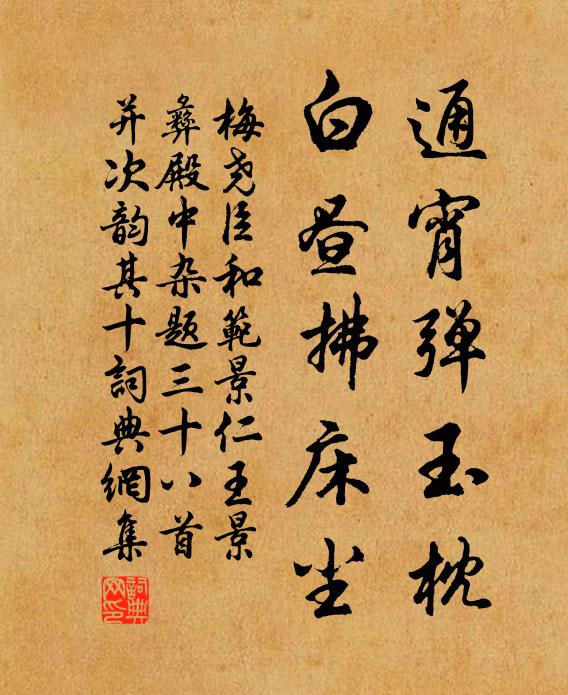 通宵弹玉枕
白昼拂床尘
梅尧臣和範景仁王景
彝殿中杂题三十八首
并次韵其十詞典網集
詞典
网印